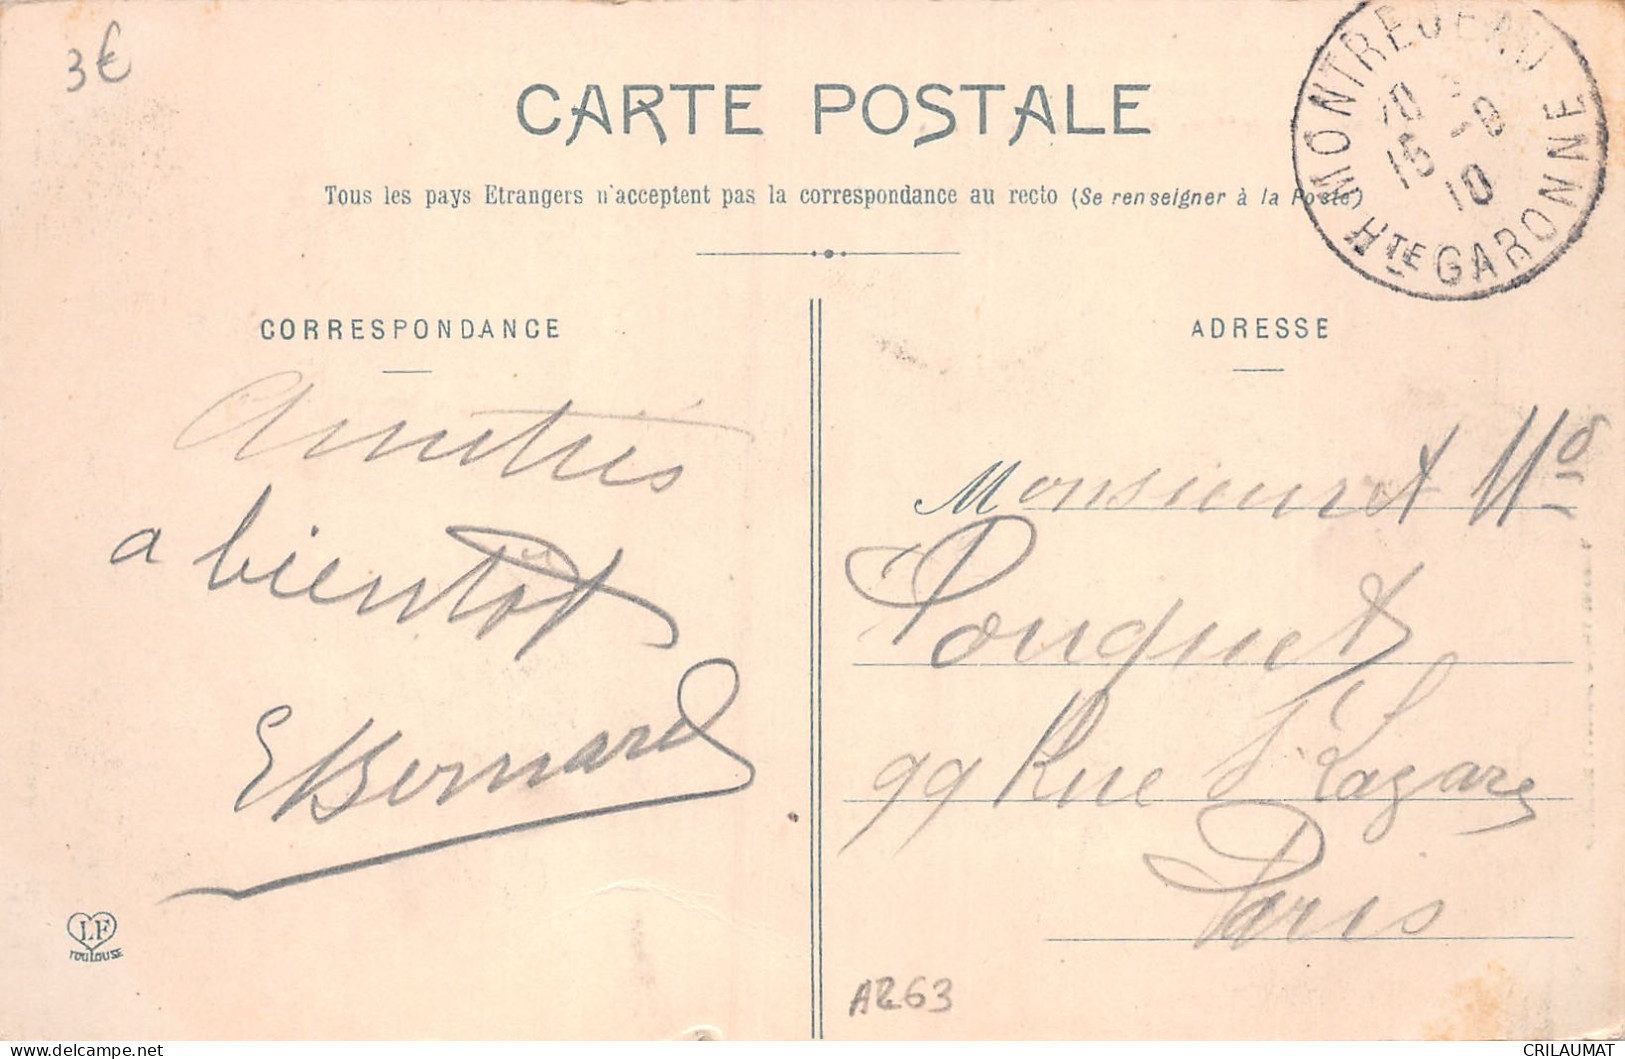 3€
CARTE POSTALE
Tous les pays Etrangers n'acceptent pas la correspondance au recto (Se renseigner à la Poste)
MONTREJEAU
Hte GARONNE
15
10
CORRESPONDANCE
Amitiés
a bientôt
EBernard
LF
TOULOUSE
ADRESSE
Monsieur et
Pouquet
99 Rue St Lazare
Paris
AR63
CRILAUMAT